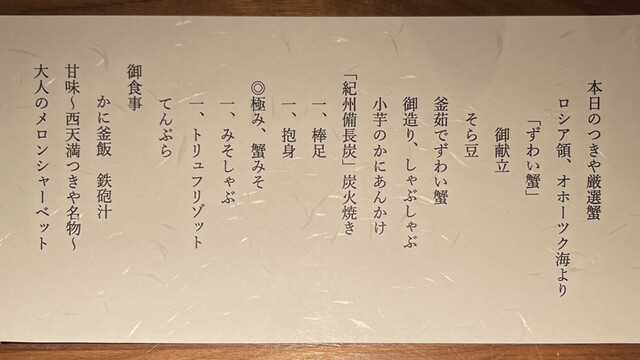 本日のつきや厳選蟹
ロシア領、オホーツク海より
「ずわい蟹」
御献立
そら豆
釜茹でずわい蟹
御造り、しゃぶしゃぶ
小芋のかにあんかけ
「紀州備長炭」炭火焼き
一、棒足
一、抱身
◎極み、蟹みそ
一、みそしゃぶ
一、トリュフリゾット
てんぷら
御食事
かに釜飯　鉄砲汁
甘味〜西天満つきや名物〜
大人のメロンシャーベット